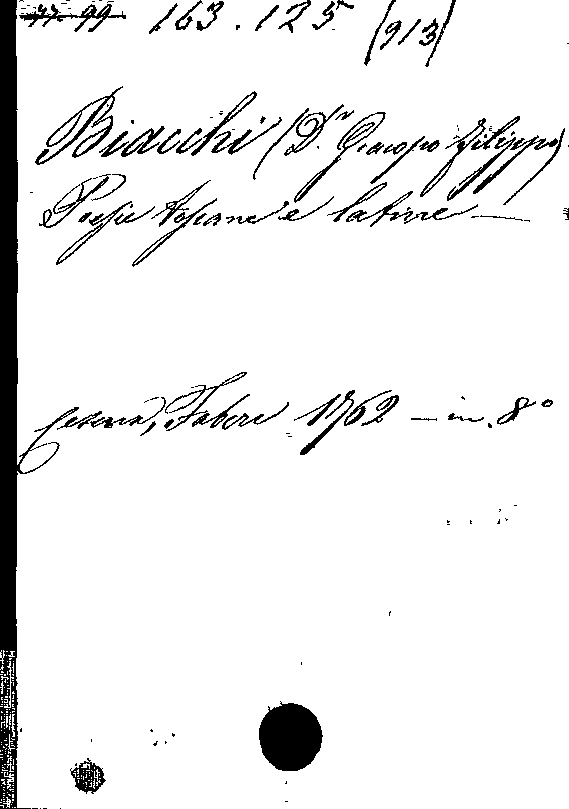 77. 99 163.125 (913)
Biacchi (D.r Giacopo Filippo)
Poesie toscane e latine —
Cesena, Fabri 1762 — in. 8°